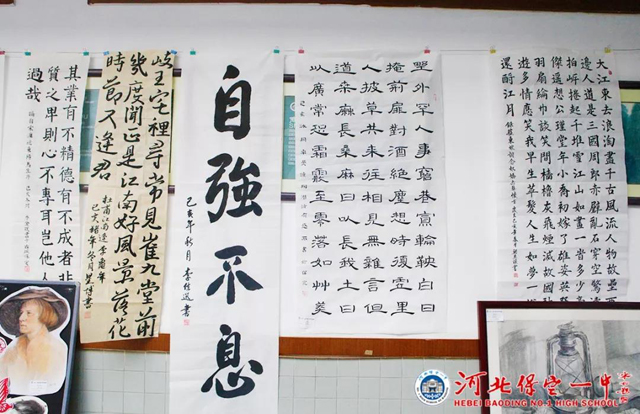 大江東去浪淘盡千古風流人物故壘西
邊人道是三國周郎赤壁亂石穿空驚濤
拍岸捲起千堆雪江山如畫一時多少豪
傑遙想公瑾當年小喬初嫁了雄姿英發
羽扇綸巾談笑間檣櫓灰飛煙滅故國神
遊多情應笑我早生華髮人生如夢一
還酹江月
野外罕人事窮巷寡輪鞅白日
掩荊扉對酒絕塵想時復墟里
人披草共來往相見無雜言但
道桑麻長桑麻日以長我土日
以廣常恐霜霰至零落如艸莽
自強不息
己亥年秋月
岐王宅裡尋常見崔九堂前
幾度聞正是江南好風景落花
時節又逢君
杜甫江南逢李龜年
其業有不精德有不成者非
質之卑則心不專耳豈他人
過哉
河北保定一中
HEBEI BAODING NO.1 HIGH SCHOOL